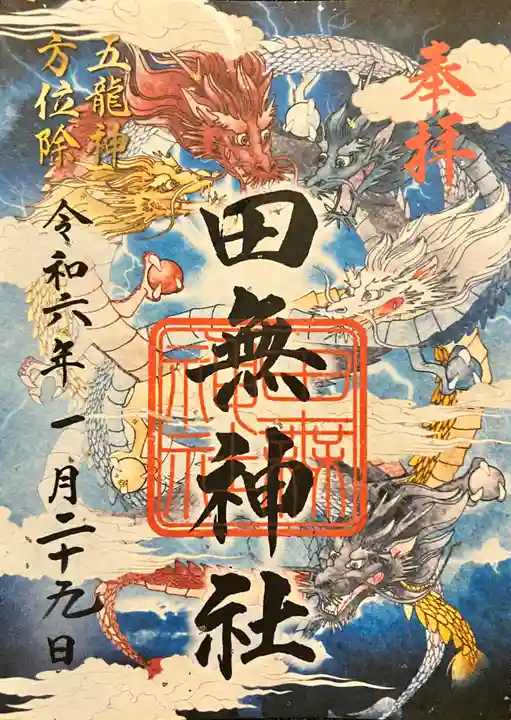 奉拝
田無神社
田無神社
五龍神
方位除
令和六年一月二十九日